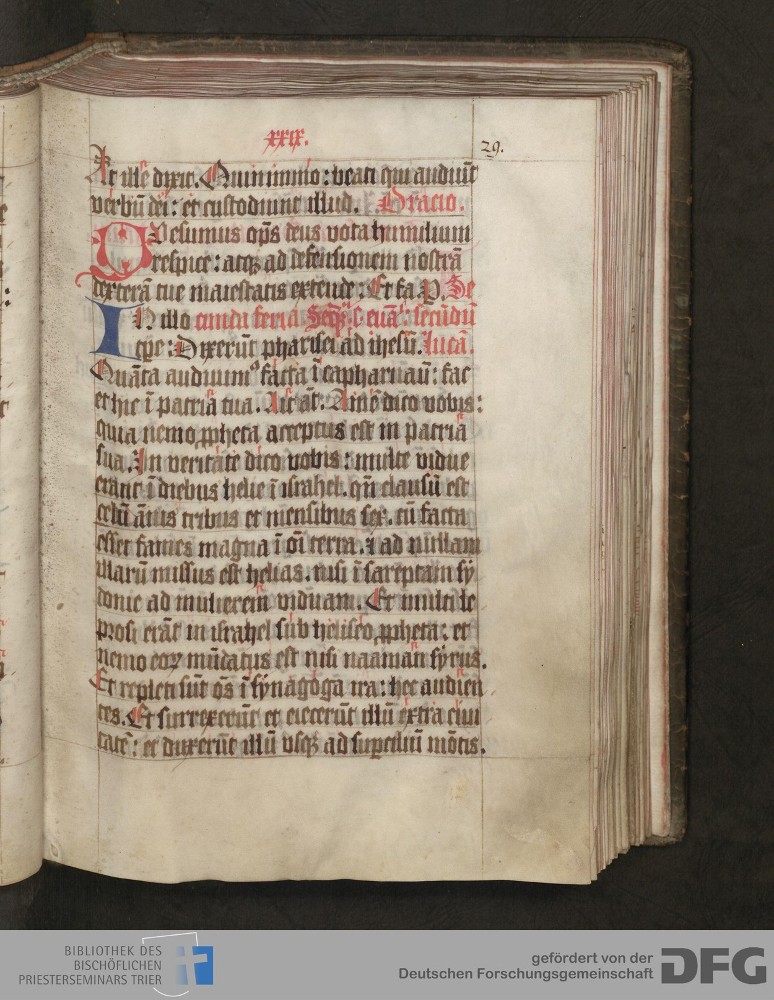 xxix.
29.
At ille dixit. Quinimmo: beati qui audiūt
verbū dei: et custodiunt illud. Oracio.
Quesumus op̄s deus vota humilium
respice: atq; ad defensionem nostrā
dexterā tue maiestatis extende: Et fa. P. Se
In illo cunda feria Seq̄. s. euā. secūdū
tp̄e: Dixerūt pharisei ad ihesū. lucā.
Quāta audiuimꝰ facta ī capharnaū: fac
et hic ī patriā tua. Ait āt. Amē dico vobis:
quia nemo ꝓpheta acceptus est in patriā
sua. In veritate dico vobis: multe vidue
erant ī diebus helie ī israhel. qn̄ clausū est
celū ānis tribus et mensibus sex. cū facta
esset fames magna ī oī terra. ⁊ ad nullam
illarū missus est helias. nisi ī sareptam sy
donie ad mulierem viduam. Et multi le
prosi erāt in israhel sub heliseo ꝓpheta: et
nemo eoꝝ mūdatus est nisi naaman syrus.
Et repleti sūt oēs ī synagoga ira: hec audien
tes. Et surrexerūt et eiecerūt illū extra ciui
tatē: et duxerūt illū vsq; ad superciliū mōtis.
BIBLIOTHEK DES
BISCHÖFLICHEN
PRIESTERSEMINARS TRIER
gefördert von der
Deutschen Forschungsgemeinschaft
DFG